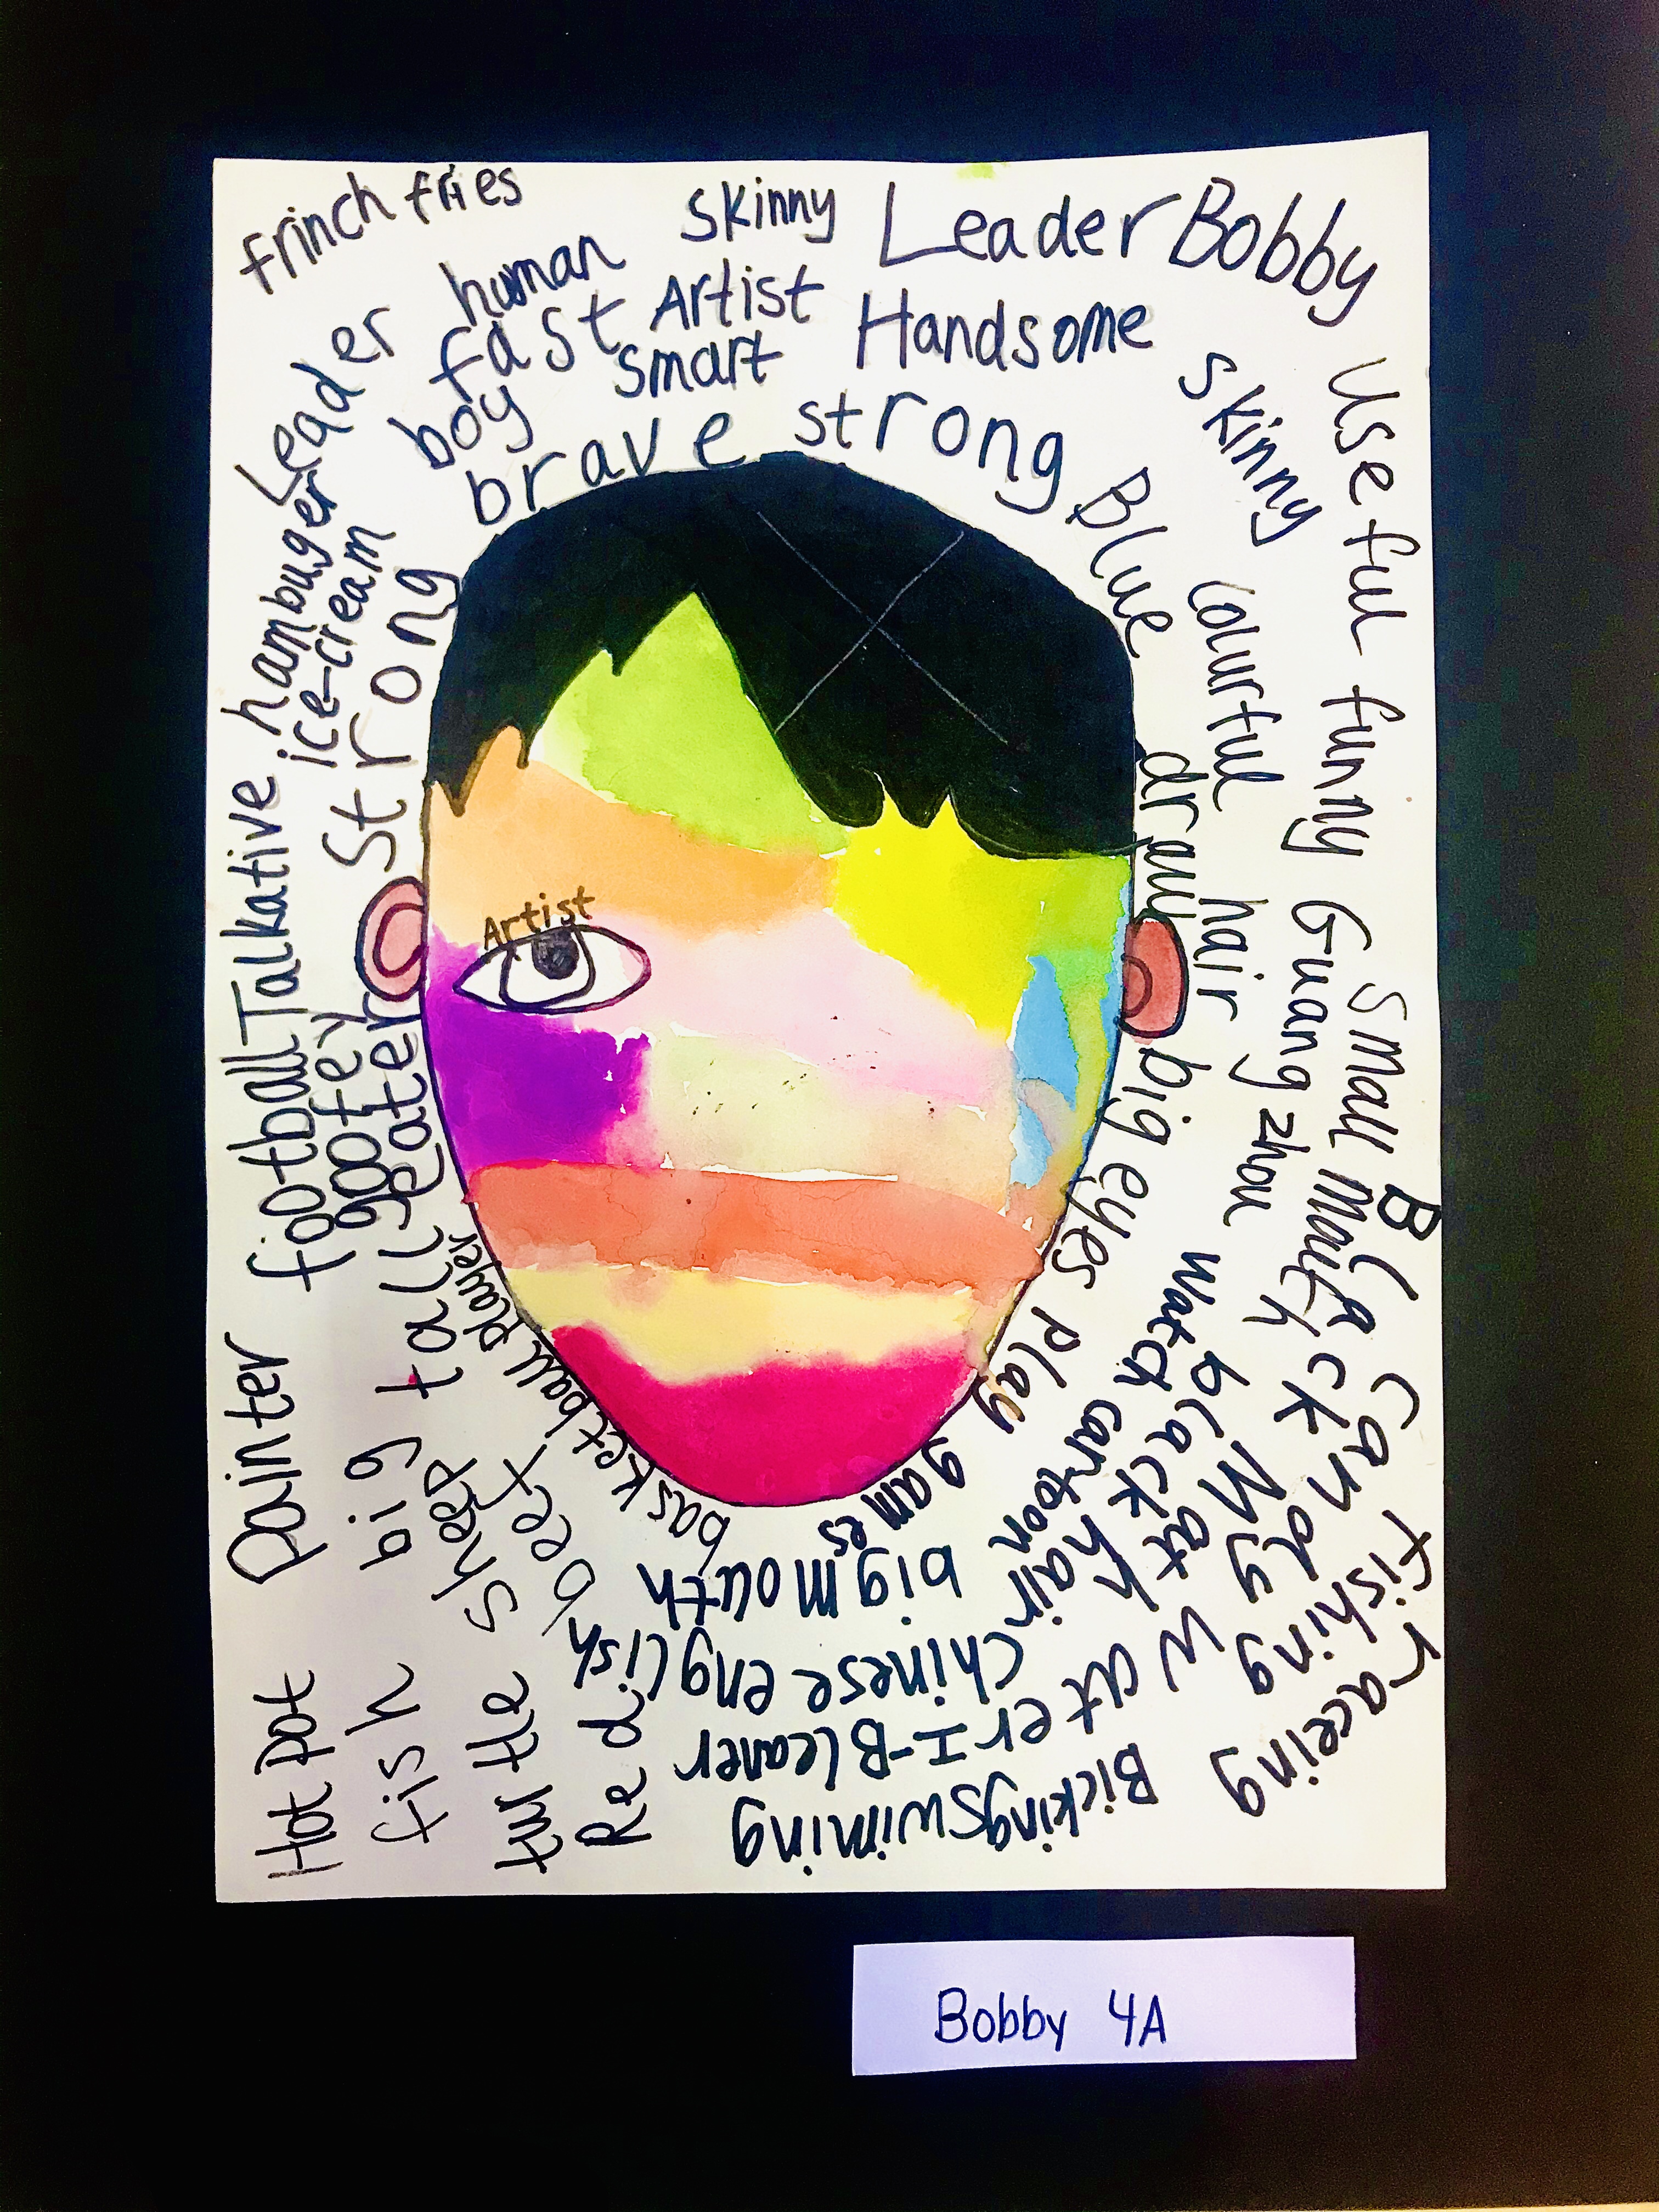 frinch fries
Skinny
Leader
Bobby
human
Artist
Handsome
fast
smart
boy
brave
strong
Blue
Skinny
Useful
funny
colourful
hair
draw
Guang zhou
Small mouth
big eyes
Black
Candy
fishing
raceing
watch cartoon
black hair
Mat
My
play games
water
Bicking
swiming
I-Bleaner
chinese
english
big mouth
Leader
hambuger
ice-cream
Strong
Talkative
football
goofey
eater
tall
big
Painter
basketball player
beef
sheep
Hot pot
fish
turtle
Red
Artist
Bobby 4A